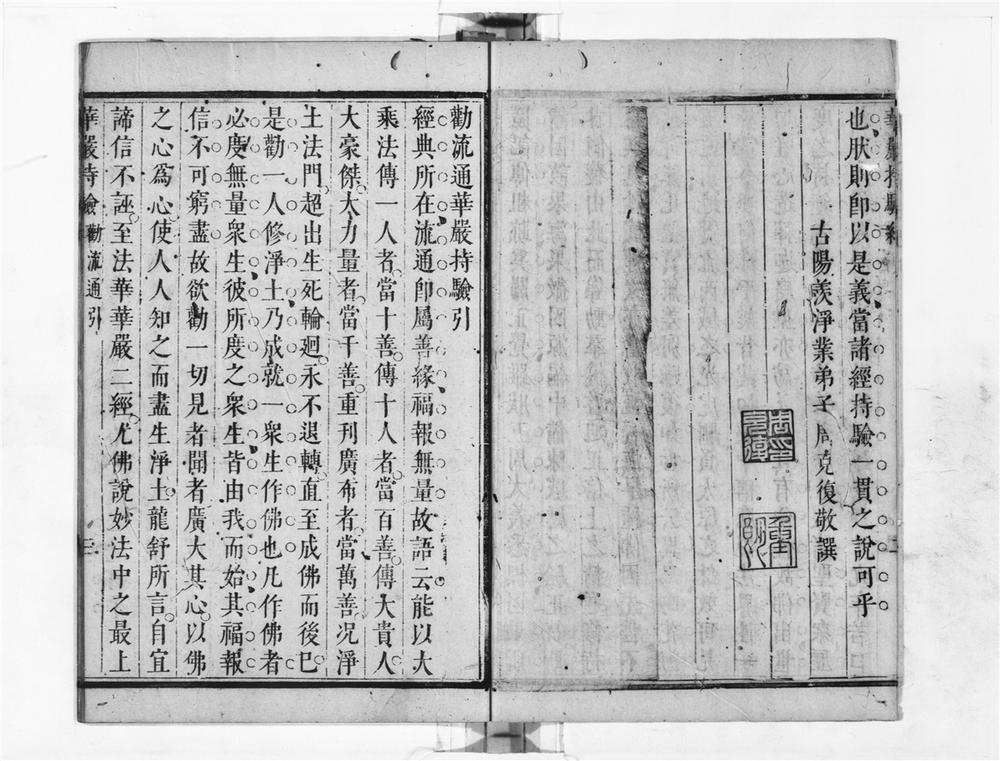 也肰則卽以是義當諸經持驗一貫之說可乎
古陽羨淨業弟子周克復敬譔
勸流通華嚴持驗引
經典所在流通卽屬善緣福報無量故語云能以大
乘法傳一人者當十善傳十人者當百善傳大貴人
大豪傑大力量者當千善重刊廣布者當萬善况淨
土法門超出生死輪廻永不退轉直至成佛而後巳
是勸一人修淨土乃成就一衆生作佛也凡作佛者
必度無量衆生彼所度之衆生皆由我而始其福報
信不可窮盡故欲勸一切見者聞者廣大其心以佛
之心爲心使人人知之而盡生淨土龍舒所言自宜
諦信不誣至法華華嚴二經尤佛說妙法中之最上
華嚴持驗 勸流通引 三